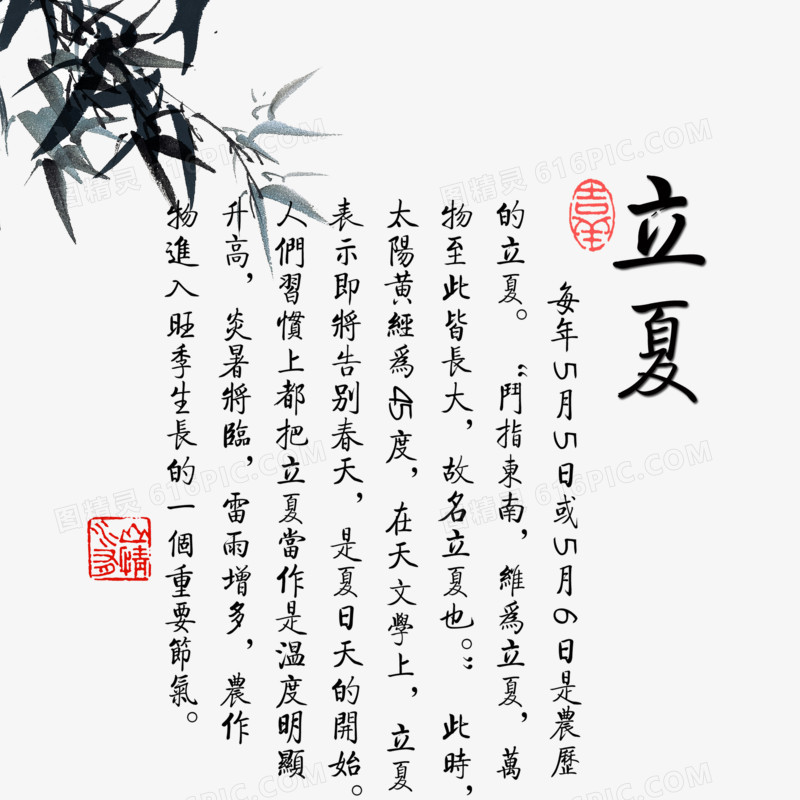 立夏
每年5月5日或5月6日是農歷
的立夏。“鬥指東南，維爲立夏，萬
物至此皆長大，故名立夏也。”此時，
太陽黄經爲45度，在天文學上，立夏
表示即將告别春天，是夏日天的開始。
人們習慣上都把立夏當作是温度明顯
升高，炎暑將臨，雷雨增多，農作
物進入旺季生長的一個重要節氣。
图精灵 616PIC.COM